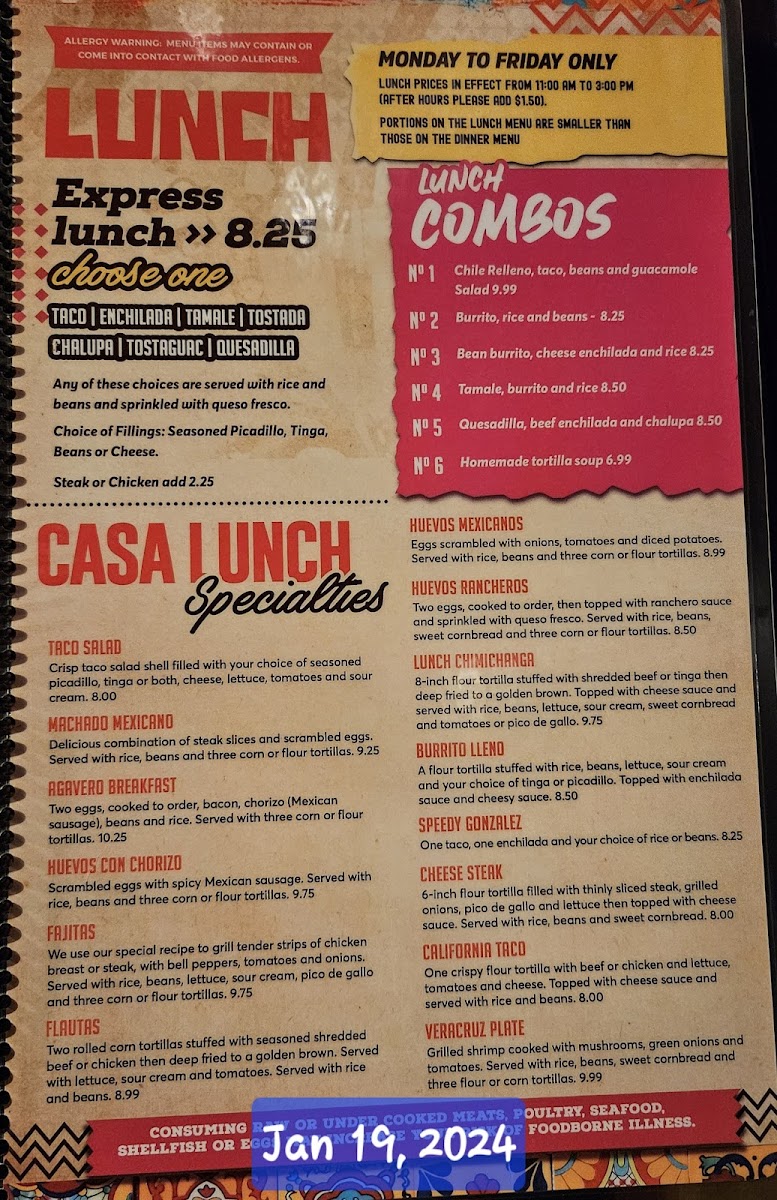 ALLERGY WARNING: MENU ITEMS MAY CONTAIN OR
COME INTO CONTACT WITH FOOD ALLERGENS.
LUNCH
MONDAY TO FRIDAY ONLY
LUNCH PRICES IN EFFECT FROM 11:00 AM TO 3:00 PM
(AFTER HOURS PLEASE ADD $1.50).
PORTIONS ON THE LUNCH MENU ARE SMALLER THAN
THOSE ON THE DINNER MENU
Express
lunch >> 8.25
choose one
TACO | ENCHILADA | TAMALE | TOSTADA
CHALUPA | TOSTAGUAC | QUESADILLA
Any of these choices are served with rice and
beans and sprinkled with queso fresco.
Choice of Fillings: Seasoned Picadillo, Tinga,
Beans or Cheese.
Steak or Chicken add 2.25
LUNCH
COMBOS
Nº 1 Chile Relleno, taco, beans and guacamole
Salad 9.99
Nº 2 Burrito, rice and beans - 8.25
Nº 3 Bean burrito, cheese enchilada and rice 8.25
Nº 4 Tamale, burrito and rice 8.50
Nº 5 Quesadilla, beef enchilada and chalupa 8.50
Nº 6 Homemade tortilla soup 6.99
CASA LUNCH
Specialties
TACO SALAD
Crisp taco salad shell filled with your choice of seasoned
picadillo, tinga or both, cheese, lettuce, tomatoes and sour
cream. 8.00
MACHADO MEXICANO
Delicious combination of steak slices and scrambled eggs.
Served with rice, beans and three corn or flour tortillas. 9.25
AGAVERO BREAKFAST
Two eggs, cooked to order, bacon, chorizo (Mexican
sausage), beans and rice. Served with three corn or flour
tortillas. 10.25
HUEVOS CON CHORIZO
Scrambled eggs with spicy Mexican sausage. Served with
rice, beans and three corn or flour tortillas. 9.75
FAJITAS
We use our special recipe to grill tender strips of chicken
breast or steak, with bell peppers, tomatoes and onions.
Served with rice, beans, lettuce, sour cream, pico de gallo
and three corn or flour tortillas. 9.75
FLAUTAS
Two rolled corn tortillas stuffed with seasoned shredded
beef or chicken then deep fried to a golden brown. Served
with lettuce, sour cream and tomatoes. Served with rice
and beans. 8.99
HUEVOS MEXICANOS
Eggs scrambled with onions, tomatoes and diced potatoes.
Served with rice, beans and three corn or flour tortillas. 8.99
HUEVOS RANCHEROS
Two eggs, cooked to order, then topped with ranchero sauce
and sprinkled with queso fresco. Served with rice, beans,
sweet cornbread and three corn or flour tortillas. 8.50
LUNCH CHIMICHANGA
8-inch flour tortilla stuffed with shredded beef or tinga then
deep fried to a golden brown. Topped with cheese sauce and
served with rice, beans, lettuce, sour cream, sweet cornbread
and tomatoes or pico de gallo. 9.75
BURRITO LLENO
A flour tortilla stuffed with rice, beans, lettuce, sour cream
and your choice of tinga or picadillo. Topped with enchilada
sauce and cheesy sauce. 8.50
SPEEDY GONZALEZ
One taco, one enchilada and your choice of rice or beans. 8.25
CHEESE STEAK
6-inch flour tortilla filled with thinly sliced steak, grilled
onions, pico de gallo and lettuce then topped with cheese
sauce. Served with rice, beans and sweet cornbread. 8.00
CALIFORNIA TACO
One crispy flour tortilla with beef or chicken and lettuce,
tomatoes and cheese. Topped with cheese sauce and
served with rice and beans. 8.00
VERACRUZ PLATE
Grilled shrimp cooked with mushrooms, green onions and
tomatoes. Served with rice, beans, sweet cornbread and
three flour or corn tortillas. 9.99
CONSUMING RAW OR UNDER COOKED MEATS, POULTRY, SEAFOOD,
SHELLFISH OR FOODBORNE ILLNESS.
Jan 19, 2024